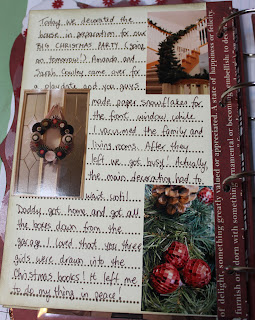 Today we decorated the
house in preparation for our
BIG CHRISTMAS PARTY (going
on tomorrow!) Amanda and
Sarah Cowley came over for
a playdate and you guys
made paper snowflakes for
the front window while
I vacuumed the family and
living rooms. After they
left we got busy! Actually,
the main decorating had to
wait until
Daddy got home and got all
the boxes down from the
garage. I loved that you three
girls were drawn into the
Christmas books! It left me
to do my thing in peace.
of delight, something greatly valued or appreciated. A state of happiness or felicity.
furnish or adorn with something ornamental or becoming; embellish: to